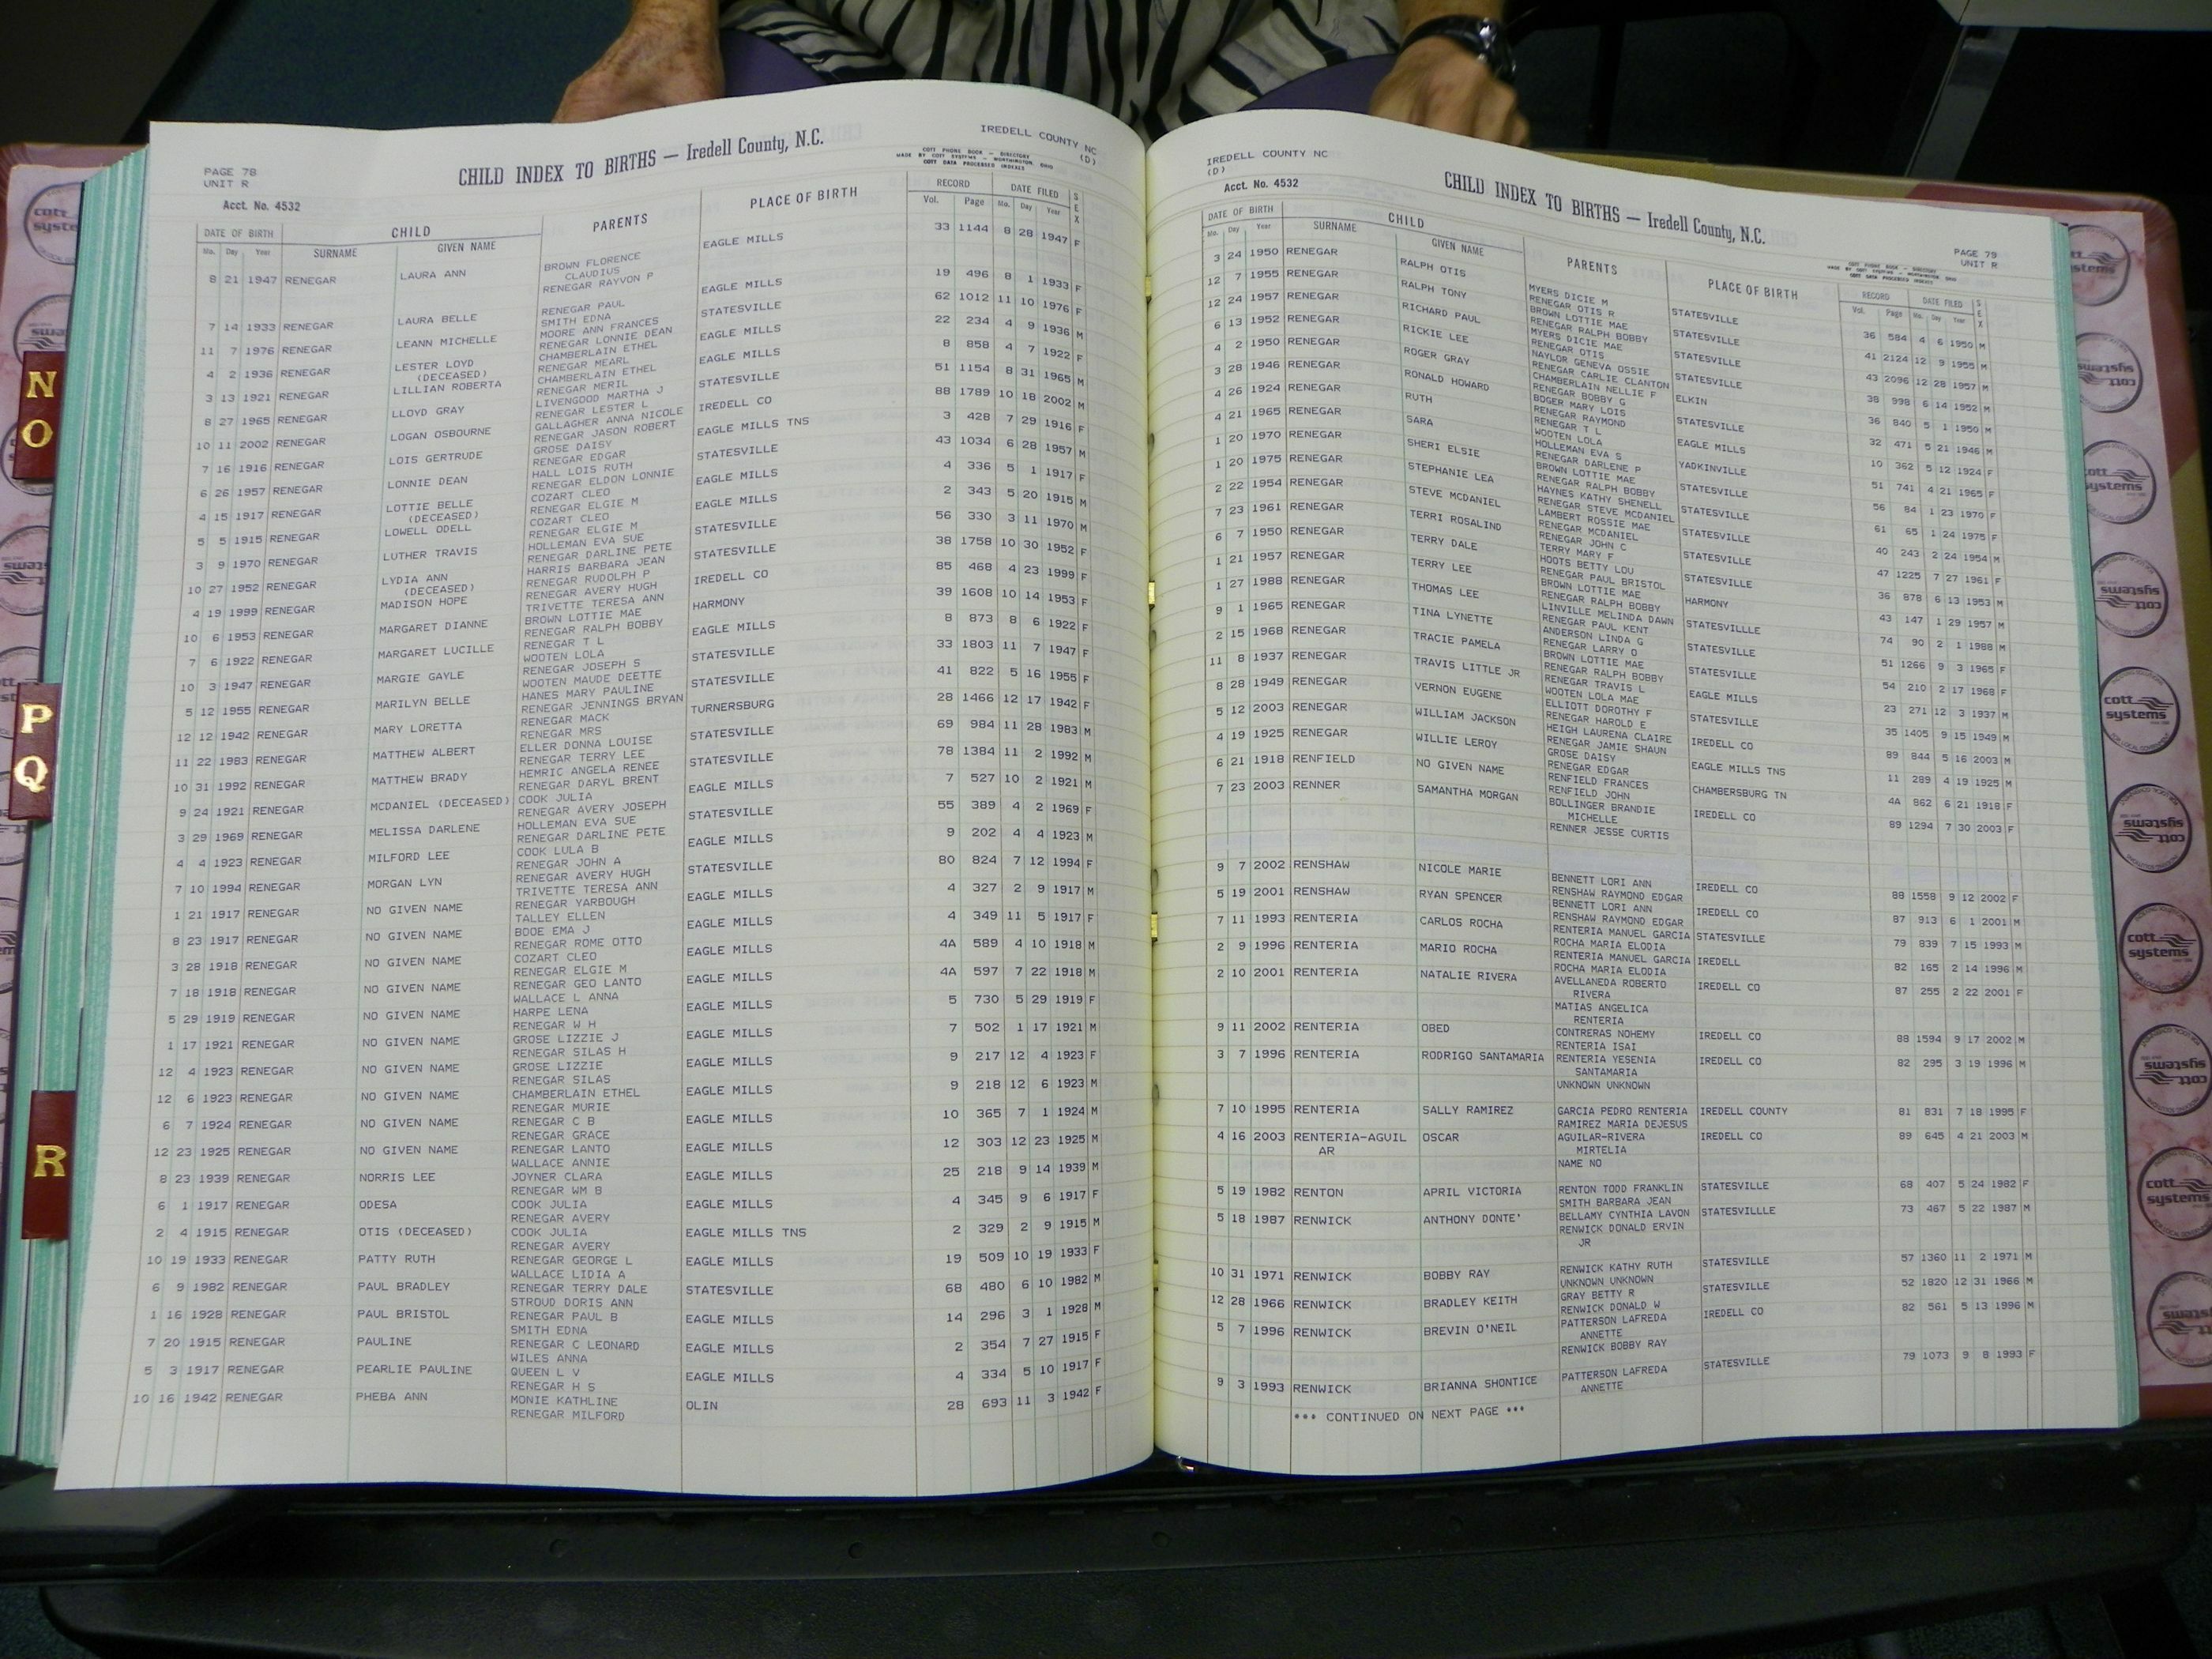 IREDELL COUNTY NC
(D)
PAGE 78
UNIT R
CHILD INDEX TO BIRTHS — Iredell County, N.C.
COTT PHONE BOOK - DIRECTORY
MADE BY COTT SYSTEMS - WORTHINGTON, OHIO
COTT DATA PROCESSED INDEXES
Acct. No. 4532
DATE OF BIRTH CHILD PARENTS PLACE OF BIRTH RECORD DATE FILED SEX
Mo. Day Year SURNAME GIVEN NAME Vol. Page Mo. Day Year
8 21 1947 RENEGAR LAURA ANN BROWN FLORENCE EAGLE MILLS 33 1144 8 28 1947 F
CLAUDIUS
RENEGAR RAYVON P
7 14 1933 RENEGAR LAURA BELLE RENEGAR PAUL EAGLE MILLS 19 496 8 1 1933 F
SMITH EDNA
11 7 1976 RENEGAR LEANN MICHELLE MOORE ANN FRANCES STATESVILLE 62 1012 11 10 1976 F
RENEGAR LONNIE DEAN
4 2 1936 RENEGAR LESTER LOYD CHAMBERLAIN ETHEL EAGLE MILLS 22 234 4 9 1936 M
(DECEASED) RENEGAR MEARL
3 13 1921 RENEGAR LILLIAN ROBERTA CHAMBERLAIN ETHEL EAGLE MILLS 8 858 4 7 1922 F
RENEGAR MERIL
8 27 1965 RENEGAR LLOYD GRAY LIVENGOOD MARTHA J STATESVILLE 51 1154 8 31 1965 M
RENEGAR LESTER L
10 11 2002 RENEGAR LOGAN OSBOURNE GALLAGHER ANNA NICOLE IREDELL CO 88 1789 10 18 2002 M
RENEGAR JASON ROBERT
7 16 1916 RENEGAR LOIS GERTRUDE GROSE DAISY EAGLE MILLS TNS 3 428 7 29 1916 F
RENEGAR EDGAR
6 26 1957 RENEGAR LONNIE DEAN HALL LOIS RUTH STATESVILLE 43 1034 6 28 1957 M
RENEGAR ELDON LONNIE
4 15 1917 RENEGAR LOTTIE BELLE COZART CLEO EAGLE MILLS 4 336 5 1 1917 F
(DECEASED) RENEGAR ELGIE M
5 5 1915 RENEGAR LOWELL ODELL COZART CLEO EAGLE MILLS 2 343 5 20 1915 M
RENEGAR ELGIE M
3 9 1970 RENEGAR LUTHER TRAVIS HOLLEMAN EVA SUE STATESVILLE 56 330 3 11 1970 M
RENEGAR DARLINE PETE
10 27 1952 RENEGAR LYDIA ANN HARRIS BARBARA JEAN STATESVILLE 38 1758 10 30 1952 F
(DECEASED) RENEGAR RUDOLPH P
4 19 1999 RENEGAR MADISON HOPE RENEGAR AVERY HUGH IREDELL CO 85 468 4 23 1999 F
TRIVETTE TERESA ANN
10 6 1953 RENEGAR MARGARET DIANNE BROWN LOTTIE MAE HARMONY 39 1608 10 14 1953 F
RENEGAR RALPH BOBBY
7 6 1922 RENEGAR MARGARET LUCILLE RENEGAR T L EAGLE MILLS 8 873 8 6 1922 F
WOOTEN LOLA
10 3 1947 RENEGAR MARGIE GAYLE RENEGAR JOSEPH S STATESVILLE 33 1803 11 7 1947 F
WOOTEN MAUDE DEETTE
5 12 1955 RENEGAR MARILYN BELLE HANES MARY PAULINE STATESVILLE 41 822 5 16 1955 F
RENEGAR JENNINGS BRYAN
12 12 1942 RENEGAR MARY LORETTA RENEGAR MACK TURNERSBURG 28 1466 12 17 1942 F
RENEGAR MRS
11 22 1983 RENEGAR MATTHEW ALBERT ELLER DONNA LOUISE STATESVILLE 69 984 11 28 1983 M
RENEGAR TERRY LEE
10 31 1992 RENEGAR MATTHEW BRADY HEMRIC ANGELA RENEE STATESVILLE 78 1384 11 2 1992 M
RENEGAR DARYL BRENT
9 24 1921 RENEGAR MCDANIEL (DECEASED) COOK JULIA EAGLE MILLS 7 527 10 2 1921 M
RENEGAR AVERY JOSEPH
3 29 1969 RENEGAR MELISSA DARLENE HOLLEMAN EVA SUE STATESVILLE 55 389 4 2 1969 F
RENEGAR DARLINE PETE
4 4 1923 RENEGAR MILFORD LEE COOK LULA B EAGLE MILLS 9 202 4 4 1923 M
RENEGAR JOHN A
7 10 1994 RENEGAR MORGAN LYN RENEGAR AVERY HUGH STATESVILLE 80 824 7 12 1994 F
TRIVETTE TERESA ANN
1 21 1917 RENEGAR NO GIVEN NAME RENEGAR YARBOUGH EAGLE MILLS 4 327 2 9 1917 M
TALLEY ELLEN
8 23 1917 RENEGAR NO GIVEN NAME BOOE EMA J EAGLE MILLS 4 349 11 5 1917 F
RENEGAR ROME OTTO
3 28 1918 RENEGAR NO GIVEN NAME COZART CLEO EAGLE MILLS 4A 589 4 10 1918 M
RENEGAR ELGIE M
7 18 1918 RENEGAR NO GIVEN NAME RENEGAR GEO LANTO EAGLE MILLS 4A 597 7 22 1918 M
WALLACE L ANNA
5 29 1919 RENEGAR NO GIVEN NAME HARPE LENA EAGLE MILLS 5 730 5 29 1919 F
RENEGAR W H
1 17 1921 RENEGAR NO GIVEN NAME GROSE LIZZIE J EAGLE MILLS 7 502 1 17 1921 M
RENEGAR SILAS H
12 4 1923 RENEGAR NO GIVEN NAME GROSE LIZZIE EAGLE MILLS 9 217 12 4 1923 F
RENEGAR SILAS
12 6 1923 RENEGAR NO GIVEN NAME CHAMBERLAIN ETHEL EAGLE MILLS 9 218 12 6 1923 M
RENEGAR MURIE
6 7 1924 RENEGAR NO GIVEN NAME RENEGAR C B EAGLE MILLS 10 365 7 1 1924 M
RENEGAR GRACE
12 23 1925 RENEGAR NO GIVEN NAME RENEGAR LANTO EAGLE MILLS 12 303 12 23 1925 M
WALLACE ANNIE
8 23 1939 RENEGAR NORRIS LEE JOYNER CLARA EAGLE MILLS 25 218 9 14 1939 M
RENEGAR WM B
6 1 1917 RENEGAR ODESA COOK JULIA EAGLE MILLS 4 345 9 6 1917 F
RENEGAR AVERY
2 4 1915 RENEGAR OTIS (DECEASED) COOK JULIA EAGLE MILLS TNS 2 329 2 9 1915 M
RENEGAR AVERY
10 19 1933 RENEGAR PATTY RUTH RENEGAR GEORGE L EAGLE MILLS 19 509 10 19 1933 F
WALLACE LIDIA A
6 9 1982 RENEGAR PAUL BRADLEY RENEGAR TERRY DALE STATESVILLE 68 480 6 10 1982 M
STROUD DORIS ANN
1 16 1928 RENEGAR PAUL BRISTOL RENEGAR PAUL B EAGLE MILLS 14 296 3 1 1928 M
SMITH EDNA
7 20 1915 RENEGAR PAULINE RENEGAR C LEONARD EAGLE MILLS 2 354 7 27 1915 F
WILES ANNA
5 3 1917 RENEGAR PEARLIE PAULINE QUEEN L V EAGLE MILLS 4 334 5 10 1917 F
RENEGAR H S
10 16 1942 RENEGAR PHEBA ANN MONIE KATHLINE OLIN 28 693 11 3 1942 F
RENEGAR MILFORD
IREDELL COUNTY NC
(D)
Acct. No. 4532
CHILD INDEX TO BIRTHS — Iredell County, N.C.
PAGE 79
UNIT R
DATE OF BIRTH CHILD PARENTS PLACE OF BIRTH RECORD DATE FILED SEX
Mo. Day Year SURNAME GIVEN NAME Vol. Page Mo. Day Year
3 24 1950 RENEGAR
12 7 1955 RENEGAR
12 24 1957 RENEGAR
6 13 1952 RENEGAR
4 2 1950 RENEGAR
3 28 1946 RENEGAR
4 26 1924 RENEGAR
4 21 1965 RENEGAR
1 20 1970 RENEGAR
1 20 1975 RENEGAR
2 22 1954 RENEGAR
7 23 1961 RENEGAR
6 7 1950 RENEGAR
1 21 1957 RENEGAR
1 27 1988 RENEGAR
9 1 1965 RENEGAR
2 15 1968 RENEGAR
11 8 1937 RENEGAR
8 28 1949 RENEGAR
5 12 2003 RENEGAR
4 19 1925 RENEGAR
6 21 1918 RENFIELD
7 23 2003 RENNER
RALPH OTIS
RALPH TONY
RICHARD PAUL
RICKIE LEE
ROGER GRAY
RONALD HOWARD
RUTH
SARA
SHERI ELSIE
STEPHANIE LEA
STEVE MCDANIEL
TERRI ROSALIND
TERRY DALE
TERRY LEE
THOMAS LEE
TINA LYNETTE
TRACIE PAMELA
TRAVIS LITTLE JR
VERNON EUGENE
WILLIAM JACKSON
WILLIE LEROY
NO GIVEN NAME
SAMANTHA MORGAN
MYERS DICIE M
RENEGAR OTIS R
BROWN LOTTIE MAE
RENEGAR RALPH BOBBY
MYERS DICIE MAE
RENEGAR OTIS
NAYLOR GENEVA OSSIE
RENEGAR CARLIE CLANTON
CHAMBERLAIN NELLIE F
RENEGAR BOBBY G
BOGER MARY LOIS
RENEGAR RAYMOND
RENEGAR T L
WOOTEN LOLA
HOLLEMAN EVA S
RENEGAR DARLENE P
BROWN LOTTIE MAE
RENEGAR RALPH BOBBY
HAYNES KATHY SHENELL
RENEGAR STEVE MCDANIEL
LAMBERT ROSSIE MAE
RENEGAR MCDANIEL
RENEGAR JOHN C
TERRY MARY F
HOOTS BETTY LOU
RENEGAR PAUL BRISTOL
BROWN LOTTIE MAE
RENEGAR RALPH BOBBY
LINVILLE MELINDA DAWN
RENEGAR PAUL KENT
ANDERSON LINDA G
RENEGAR LARRY O
BROWN LOTTIE MAE
RENEGAR RALPH BOBBY
RENEGAR TRAVIS L
WOOTEN LOLA MAE
ELLIOTT DOROTHY F
RENEGAR HAROLD E
HEIGH LAURENA CLAIRE
RENEGAR JAMIE SHAUN
GROSE DAISY
RENEGAR EDGAR
RENFIELD FRANCES
RENFIELD JOHN
BOLLINGER BRANDIE
MICHELLE
RENNER JESSE CURTIS
STATESVILLE
STATESVILLE
STATESVILLE
ELKIN
EAGLE MILLS
YADKINVILLE
STATESVILLE
STATESVILLE
STATESVILLE
STATESVILLE
HARMONY
STATESVILLLE
STATESVILLE
EAGLE MILLS
STATESVILLE
IREDELL CO
EAGLE MILLS TNS
CHAMBERSBURG TN
IREDELL CO
36 584 4 6 1950 M
41 2124 12 9 1955 M
43 2096 12 28 1957 M
38 998 6 14 1952 M
36 840 5 1 1950 M
32 471 5 21 1946 M
10 362 5 12 1924 F
51 741 4 21 1965 F
56 84 1 23 1970 F
61 65 1 24 1975 F
40 243 2 24 1954 M
47 1225 7 27 1961 F
36 878 6 13 1953 M
43 147 1 29 1957 M
74 90 2 1 1988 M
51 1266 9 3 1965 F
54 210 2 17 1968 F
23 271 12 3 1937 M
35 1405 9 15 1949 M
89 844 5 16 2003 M
11 289 4 19 1925 M
4A 862 6 21 1918 F
89 1294 7 30 2003 F
9 7 2002 RENSHAW NICOLE MARIE BENNETT LORI ANN IREDELL CO 88 1558 9 12 2002 F
RENSHAW RAYMOND EDGAR
5 19 2001 RENSHAW RYAN SPENCER BENNETT LORI ANN IREDELL CO 87 913 6 1 2001 M
RENSHAW RAYMOND EDGAR
7 11 1993 RENTERIA CARLOS ROCHA RENTERIA MANUEL GARCIA STATESVILLE 79 839 7 15 1993 M
ROCHA MARIA ELODIA
2 9 1996 RENTERIA MARIO ROCHA RENTERIA MANUEL GARCIA IREDELL 82 165 2 14 1996 M
ROCHA MARIA ELODIA
2 10 2001 RENTERIA NATALIE RIVERA AVELLANEDA ROBERTO IREDELL CO 87 255 2 22 2001 F
RIVERA
MATIAS ANGELICA
RENTERIA
9 11 2002 RENTERIA OBED CONTRERAS NOHEMY IREDELL CO 88 1594 9 17 2002 M
RENTERIA ISAI
3 7 1996 RENTERIA RODRIGO SANTAMARIA RENTERIA YESENIA IREDELL CO 82 295 3 19 1996 M
SANTAMARIA
UNKNOWN UNKNOWN
7 10 1995 RENTERIA SALLY RAMIREZ GARCIA PEDRO RENTERIA IREDELL COUNTY 81 831 7 18 1995 F
RAMIREZ MARIA DEJESUS
4 16 2003 RENTERIA-AGUIL OSCAR AGUILAR-RIVERA IREDELL CO 89 645 4 21 2003 M
AR MIRTELIA
NAME NO
5 19 1982 RENTON APRIL VICTORIA RENTON TODD FRANKLIN STATESVILLE 68 407 5 24 1982 F
SMITH BARBARA JEAN
5 18 1987 RENWICK ANTHONY DONTE' BELLAMY CYNTHIA LAVON STATESVILLLE 73 467 5 22 1987 M
RENWICK DONALD ERVIN
JR
10 31 1971 RENWICK BOBBY RAY RENWICK KATHY RUTH STATESVILLE 57 1360 11 2 1971 M
UNKNOWN UNKNOWN
12 28 1966 RENWICK BRADLEY KEITH GRAY BETTY R STATESVILLE 52 1820 12 31 1966 M
RENWICK DONALD W
5 7 1996 RENWICK BREVIN O'NEIL PATTERSON LAFREDA IREDELL CO 82 561 5 13 1996 M
ANNETTE
RENWICK BOBBY RAY
9 3 1993 RENWICK BRIANNA SHONTICE PATTERSON LAFREDA STATESVILLE 79 1073 9 8 1993 F
ANNETTE
*** CONTINUED ON NEXT PAGE ***
N
O
P
Q
R
cott systems